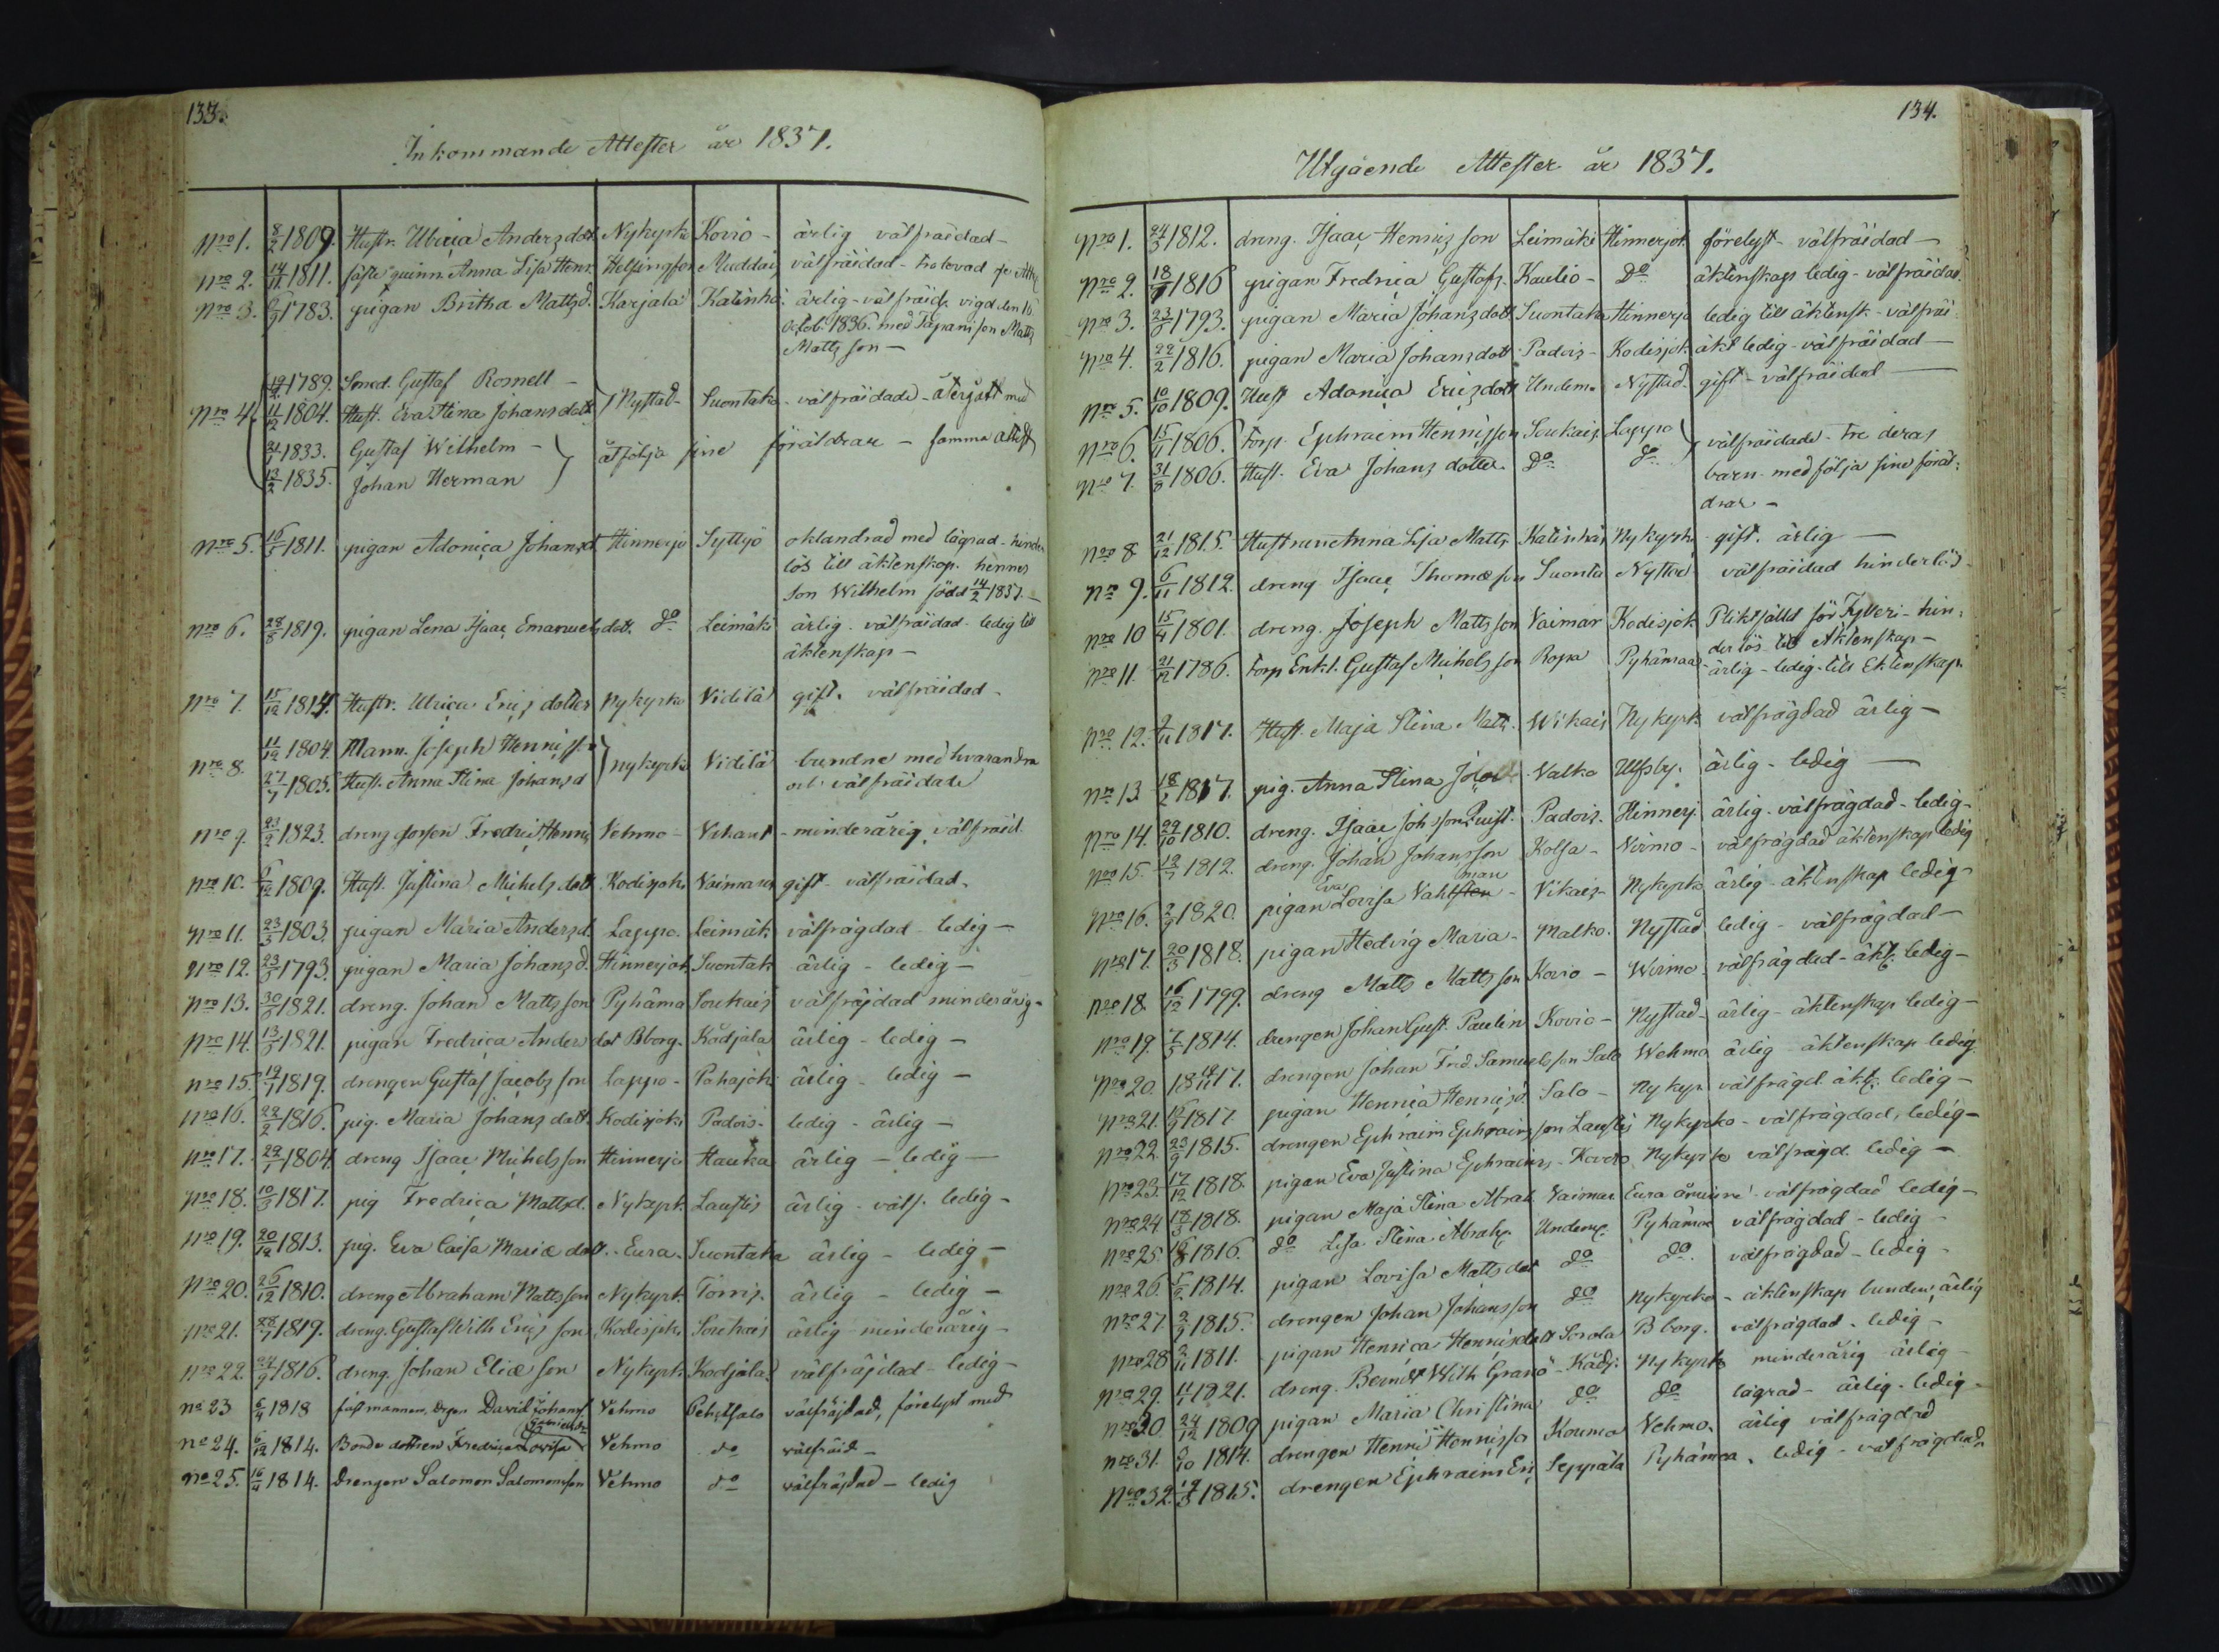 133.
Inkommande Attester år 1837.
Nro 1. 8/2 1809. Hustr. Ulrica Andersdott Nykyrko Kovio - ärlig välfräidad -
Nro 2. 14/11 1811. fäste quinn. Anna Lisa Henr. Helsingfor Muddais välfräidad -
Nro 3. 1783. pigan Britha Mattsd. Karjala Katinhä ärlig - välfräid. vigd den 10
Octob. 1836. med Matts
Matts son -
19/2 1789. Smed. Gustaf Romell -
Nro 4. 11/12 1804. Hust. Eva Stina Johansdott Nystad - Suontaka - välfräidade - återgått med
21/1 1833. Gustaf Wilhelm - åtfölja sine föräldrar - samma attest
13/2 1835. Johan Herman
Nro 5. 16/5 1811. pigan Adonica Johansd. Hinnerjo Syttyö oklandrad med lägrad - hinder
lös till äktenskap. hennes
son Wilhelm född 14/2 1837. -
Nro 6. 28/8 1819. pigan Lena Isaac Emanuels dott. do Leimäki ärlig - välfräidad - ledig till
äktenskap -
Nro 7. 15/12 1814. Hustr. Ulrica Erics dotter Nykyrko Viditä gift. välfräidad -
11/12 1804. Mann. Joseph Henricss.
Nro 8. nykyrko Viditä bundne med hvarandra
27/7 1805. Hust. Anna Stina Johansd och välfräidade
Nro 9. 23/2 1823. dreng gossen Fredric Henrics Vehmo - Vehant - minderårig, välfräid.
Nro 10. 6/12 1809. Hust. Justina Michels dott Kodisjoki Vaimaro gift - välfräidad.
Nro 11. 23/3 1803. pigan Maria Andersd. Lappo. Leimäk. välfrägdad - ledig -
Nro 12. 23/8 1793. pigan Maria Johansd. Hinnerjok Suontak ärlig - ledig -
Nro 13. 30/8 1821. dreng. Johan Matts son Pyhäma Soukais välfräjdad minderårig -
Nro 14. 13/3 1821. pigan Fredrica Anders dot Bborg. Kådjala ärlig - ledig -
Nro 15. 19/1 1819. drengen Gustaf Jacobs son Lappo - Pahajoki ärlig - ledig -
Nro 16. 22/2 1816. pig. Maria Johans dott. Kodisjoki Padois - ledig - ärlig -
Nro 17. 29/1 1804. dreng Isaac Michels son Hinnerjo Hauka ärlig - ledig -
Nro 18. 10/3 1817. pig Fredrica Mattsd. Nykyrk. Laustis ärlig - välf. ledig -
Nro 19. 20/12 1813. pig. Eva Caisa Mariæ dott. Eura. Suontaka ärlig - ledig -
Nro 20. 26/12 1810. dreng Abraham Matts son Nykyrk. Torris. ärlig - ledig -
Nro 21. 28/7 1819. dreng. Gustaf Wilh Erics son Kodisjoki Soukais ärlig - minderårig -
Nro 22. 24/9 1816. dreng. Johan Eliæ son Nykyrk. Kodjala. välfräjdad - ledig -
No 23 6/4 1818 fäst mannen, David Johans Vehmo Pehtsalo välfräjdad, förelyst med
No 24. 6/12 1814. Bonde dottren Fredrica Lovisa Gabrielsd. Vehmo do välfräid -
No 25. 16/4 1814. Drengen Salomon Salomonsson Vehmo do välfräjdad - ledig
134.
Utgående Attester år 1837.
Nro 1. 24/3 1812. dreng. Isaac Henrics son Leimäki Hinnerjok. förelyst - välfräidad -
Nro 2. 18/7 1816 pigan Fredrica Gustafs. Kaulio - Do äktenskaps ledig - välfräidad.
Nro 3. 23/8 1793. pigan Maria Johans dott Suontaka Hinnerjo ledig till äktensk - välfräi
Nro 4. 22/2 1816. pigan Maria Johans dott Padois - Kodisjok. äkt ledig - välfräidad -
Nro 5. 10/10 1809. Hust Adonica Erics dott Undem. Nystad. gift - välfräidad -
Nro 6. 15/11 1806. torp. Ephraim Henricsson Soukais. Lappo välfräidade - tre deras
Nro 7. 31/8 1806. Hust. Eva Johans dotter Do do barn medfölja sine föräl:
drar -
Nro 8 21/12 1815. Hustrun Anna Lisa Matts Katinhä Nykyrk. gift. ärlig -
Nro 9. 6/11 1812. dreng Isaac Thomæ son Suonta Nystad välfräidad hinderlös -
Nro 10 15/4 1801. dreng. Joseph Matts son Vaimar Kodisjok. Pliktfälld för Fylleri - hin:
derlös till Äktenskap -
Nro 11. 21/12 1786. torp Enkl. Gustaf Michels son Ropa Pyhämaa ärlig - ledig - till Ektenskap.
Nro 12. 1817. Hust. Maja Stina Matts. Wikais Nykyrk. välfrägdad ärlig -
Nro 13 18/2 1817. pig. Anna Stina Valko Ulfsby. ärlig - ledig -
Nro 14. 29/10 1810. dreng. Isaac Johsson Quist. Padois. Hinnerj. ärlig - välfrägdad - ledig -
Nro 15. 12/7 1812. dreng. Johan Johansson Kolsa - Virmo - välfrägdad äktenskap ledig
Nro 16. 2/9 1820. pigan Eva Lovisa Vahlsten man - Vikais - Nykyrko ärlig - äktenskap ledig -
Nro 17. 20/3 1818. pigan Hedvig Maria - Malko. Nystad ledig - välfrägdad -
Nro 18. 16/12 1799. dreng Matts Matts son Kovio - Wirmo välfrägdad - äkt. ledig -
Nro 19. 7/5 1814. drengen Johan Gust. Paulin Kovio - Nystad - ärlig - äktenskap ledig -
Nro 20. 1817. drengen Johan Fred. Samuelsson Salo Wehmo ärlig äktenskap ledig
Nro 21. 1817. pigan Henrica Henricsd. Salo - Nykyr. välfrägd. äkt. ledig -
Nro 22. 23/9 1815. drengen Ephraim Ephraims son Laustis Nykyrko - välfrägdad, ledig -
Nro 23. 17/12 1818. pigan Eva Justina Ephraims. Kovero Nykyrko välfrägd. ledig -
Nro 24 18/3 1818. pigan Maja Stina Abrah. Vaimar Eura åminne välfrägdad ledig -
Nro 25 1816. do Lisa Stina Abrah. Undem. Pyhämaa välfrägdad - ledig -
Nro 26. 1814. pigan Lovisa Matts dot do do. välfrägdad - ledig -
Nro 27. 2/9 1815. drengen Johan Johansson do Nykyrko - äktenskap bunden, ärlig
Nro 28 2/11 1811. pigan Henrica Henricsdott Sorola Bborg. välfrägdad - ledig -
Nro 29. 11/1 1821. dreng. Berndt Wilh Granö - Kådj. Nykyrko minderårig ärlig -
Nro 30. 24/12 1809 pigan Maria Christina do do lägrad - ärlig - ledig -
Nro 31. 1814. drengen Henric Henricsso Kouma Vehmo. ärlig välfrägdad
Nro 32. 1815. drengen Ephraim Eri Seppälä Pyhämaa. ledig - välfrägdad